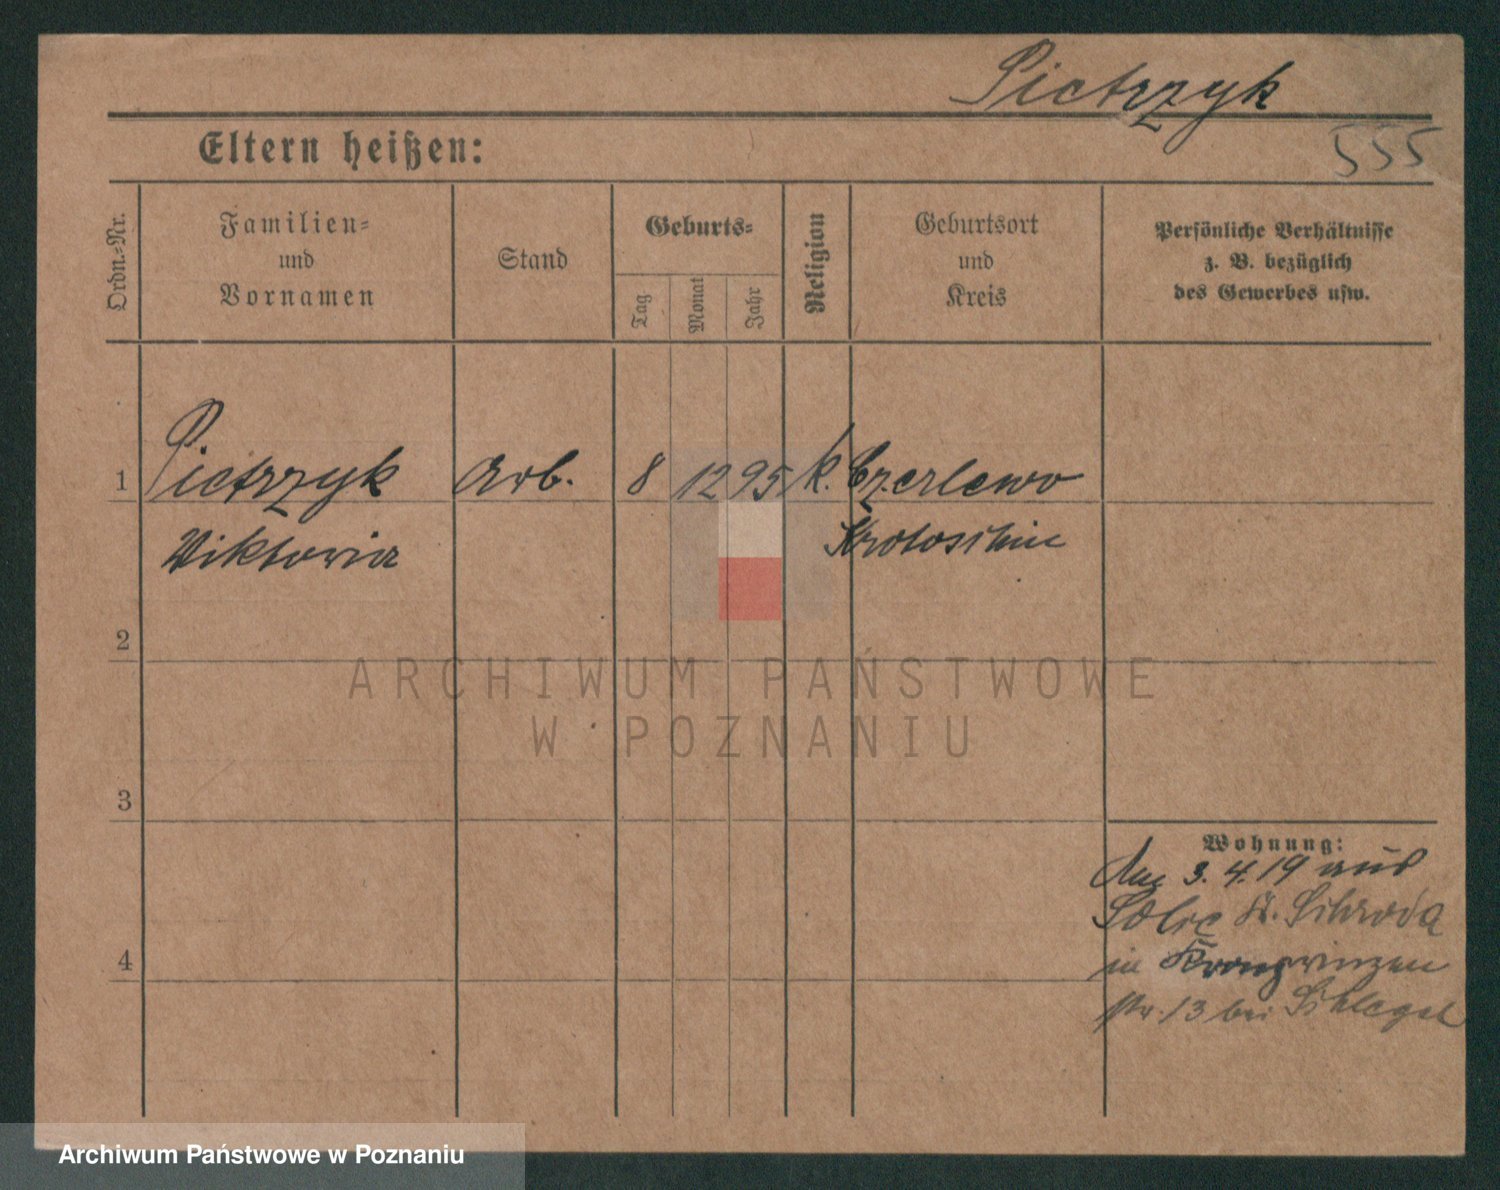 Pietrzyk
555
Eltern heißen:
Ordn.-Nr.
Familien-
und
Vornamen
Stand
Geburts-
Tag
Monat
Jahr
Religion
Geburtsort
und
Kreis
Persönliche Verhältnisse
z. B. bezüglich
des Gewerbes usw.
1 Pietrzyk Arb. 8 12 95 k. Czerlewo
Wiktoria Krotoschin
2
ARCHIWUM PAŃSTWOWE
W POZNANIU
3
Wohnung:
Am 3.4.19 aus
Kr. Schroda
4
in Kronprinzen
str. 13 bei Schlegel
Archiwum Państwowe w Poznaniu